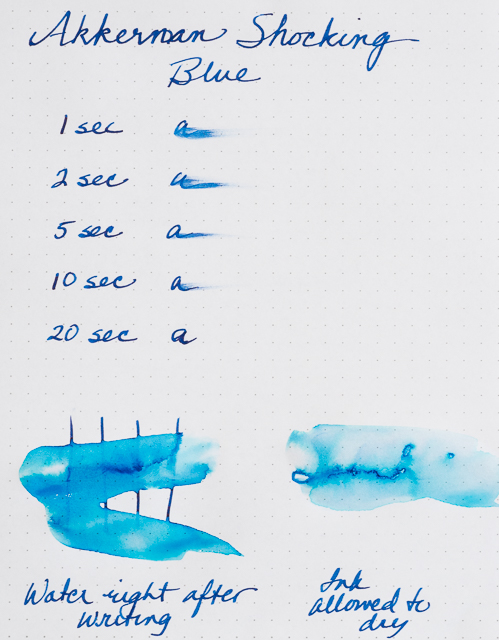 Akkerman Shocking
Blue
1 sec a
2 sec a
5 sec a
10 sec a
20 sec a
Water right after
writing
Ink
allowed to
dry